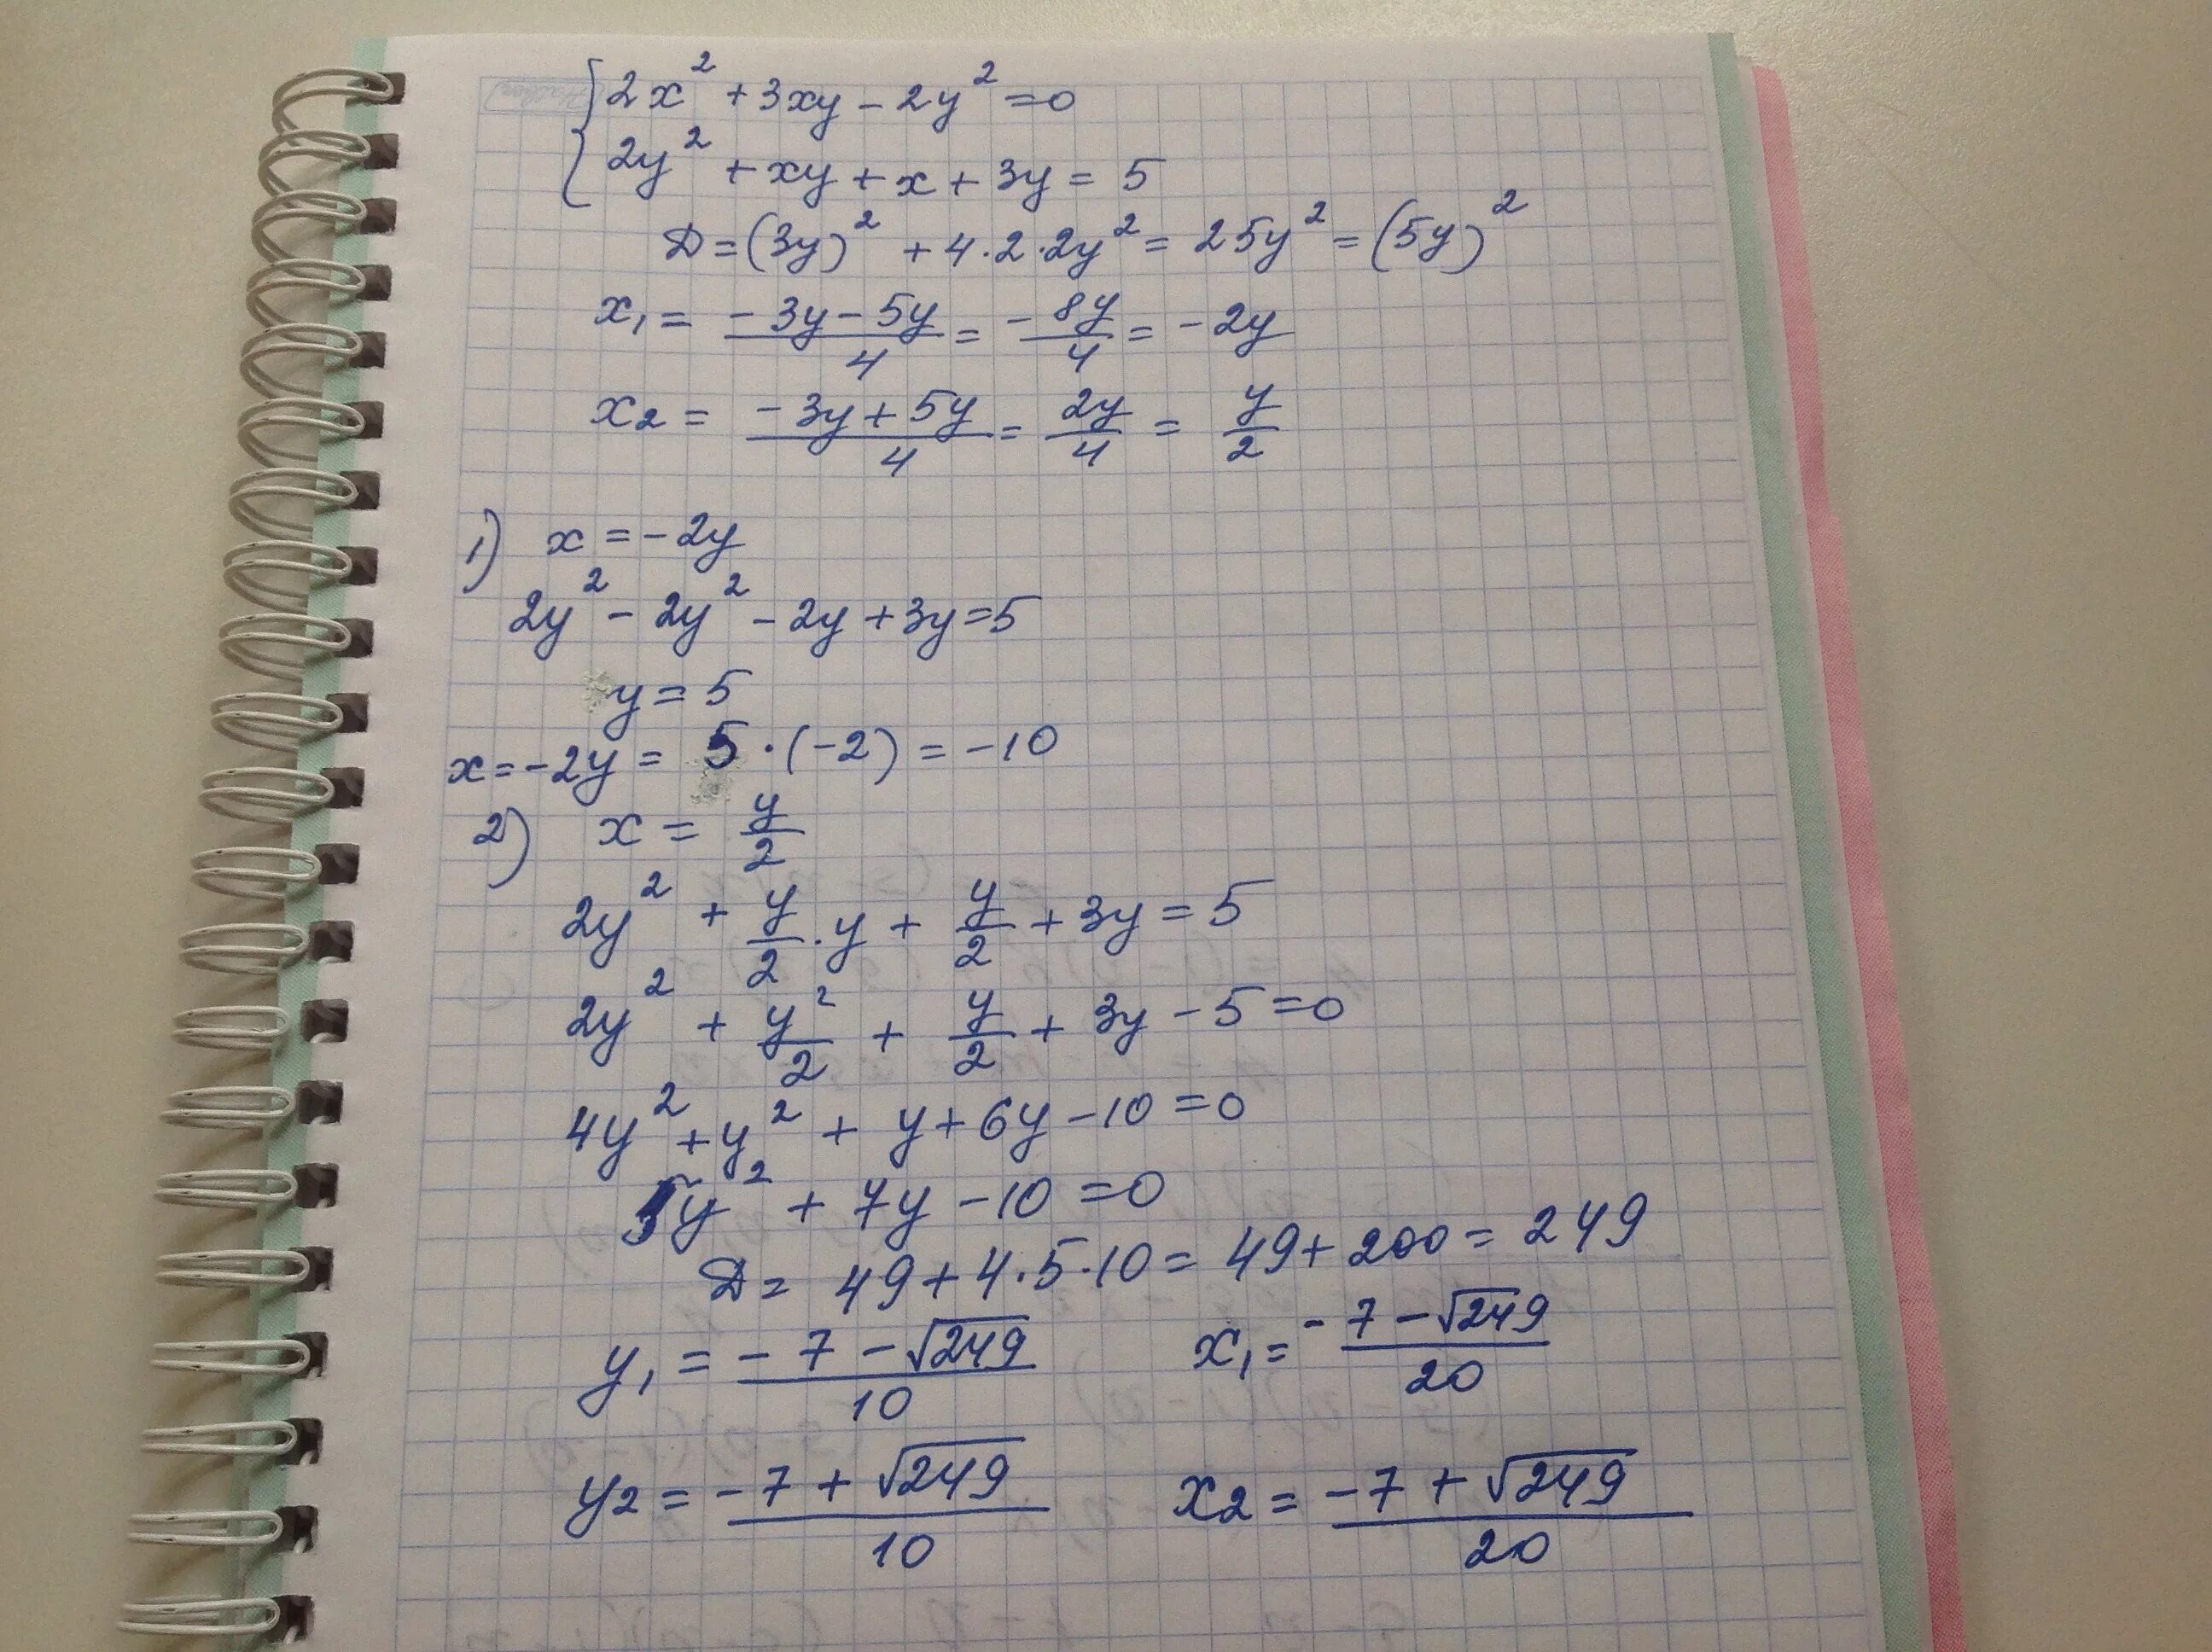 {2x² + 3xy - 2y² = 0
{2y² + xy + x + 3y = 5
Д = (3y)² + 4·2·2y² = 25y² = (5y)²
x₁ = (-3y - 5y)/4 = -8y/4 = -2y
x₂ = (-3y + 5y)/4 = 2y/4 = y/2
1) x = -2y
2y² - 2y² - 2y + 3y = 5
y = 5
x = -2y = 5·(-2) = -10
2) x = y/2
2y² + y/2·y + y/2 + 3y = 5
2y² + y²/2 + y/2 + 3y - 5 = 0
4y² + y² + y + 6y - 10 = 0
5y² + 7y - 10 = 0
Д = 49 + 4·5·10 = 49 + 200 = 249
y₁ = (-7 - √249)/10 x₁ = (-7 - √249)/20
y₂ = (-7 + √249)/10 x₂ = (-7 + √249)/20